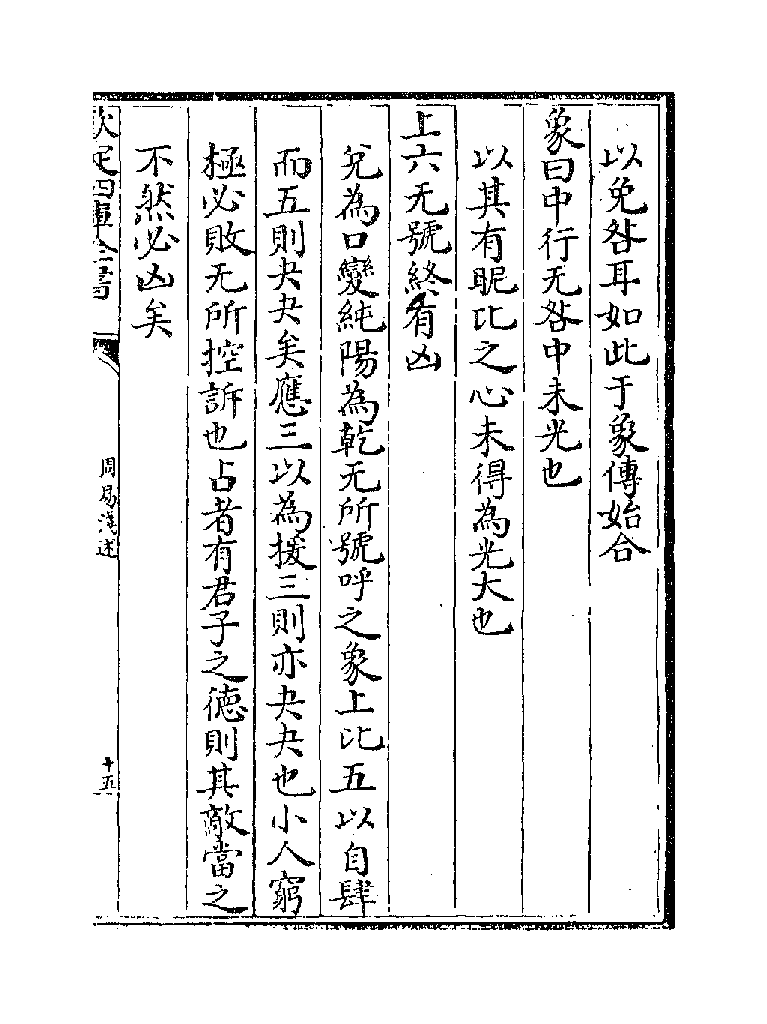 以免咎耳如此于彖傳始合
象曰中行无咎中未光也
以其有昵比之心未得為光大也
上六无號終有凶
兌為口變純陽為乾无所號呼之象上比五以自肆
而五則夬夬矣應三以為援三則亦夬夬也小人窮
極必敗无所控訴也占者有君子之德則其敵當之
不然必凶矣
欽定四庫全書
周易淺述
十五